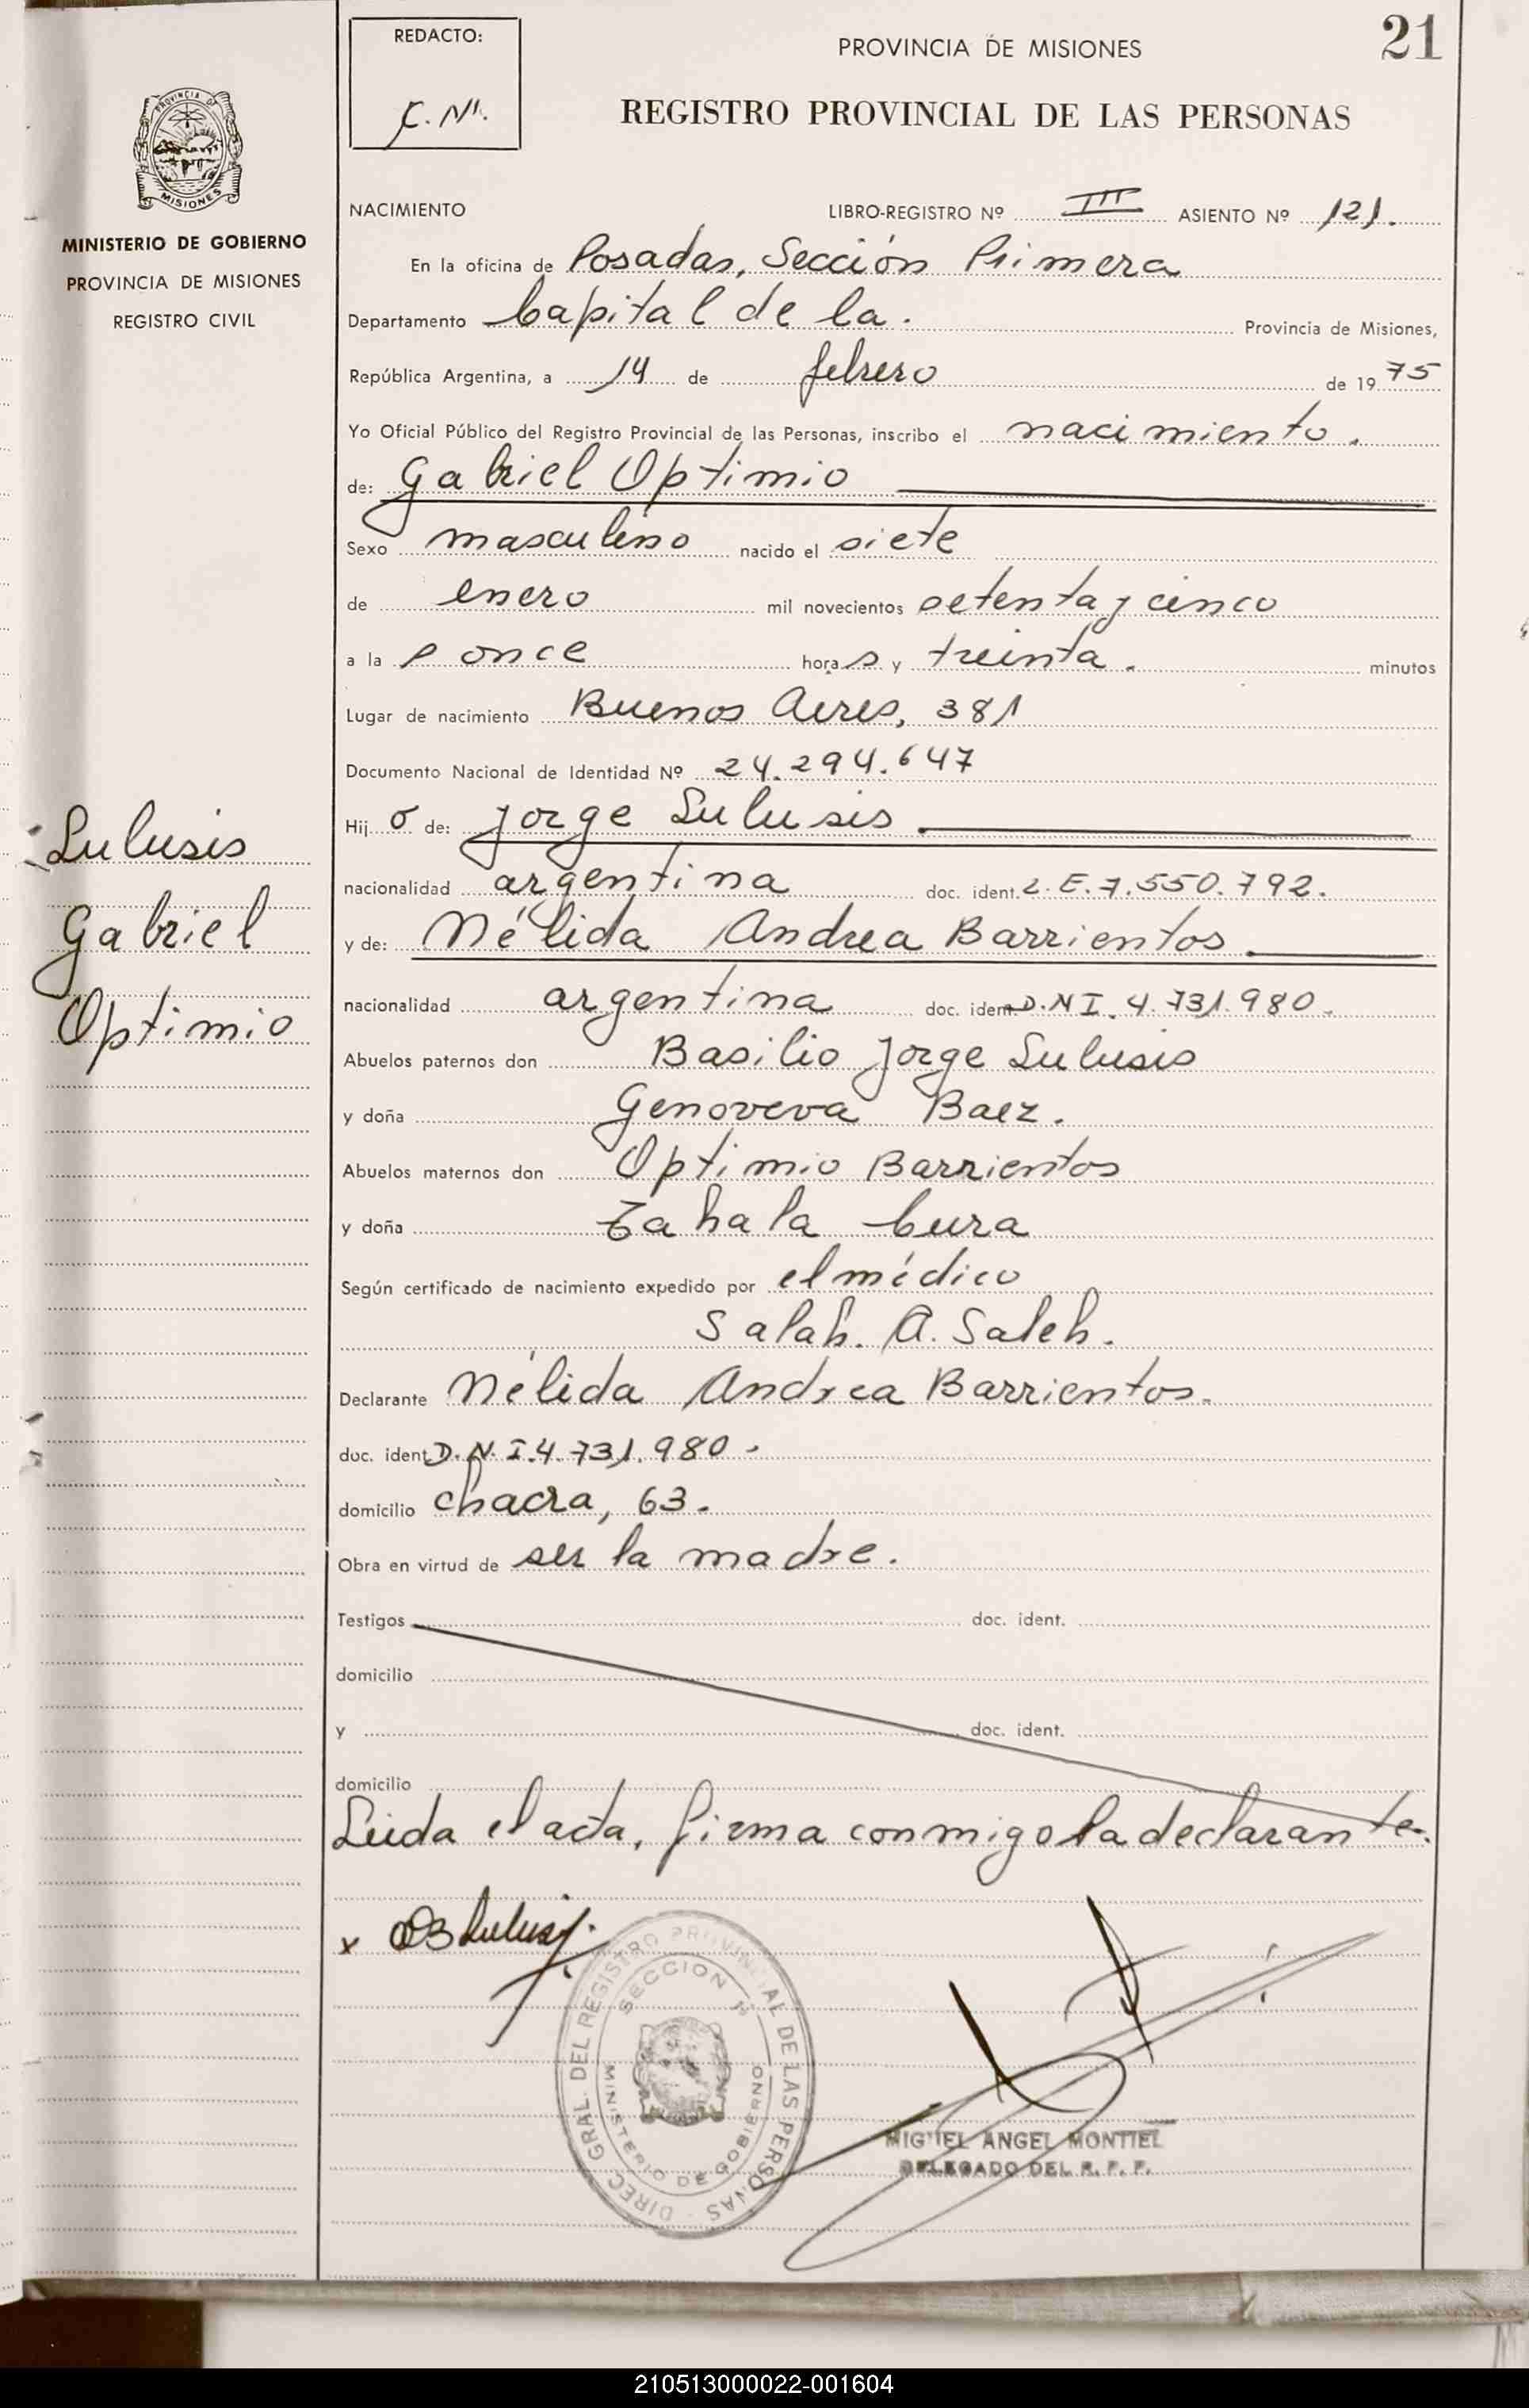 REDACTO:
F. N.
PROVINCIA DE MISIONES
21
REGISTRO PROVINCIAL DE LAS PERSONAS
PROVINCIA DE
MISIONES
MINISTERIO DE GOBIERNO
PROVINCIA DE MISIONES
REGISTRO CIVIL
NACIMIENTO LIBRO-REGISTRO Nº III ASIENTO Nº 121.
En la oficina de Posadas, Sección Primera
Departamento Capital de la. Provincia de Misiones,
República Argentina, a 14 de febrero de 1975
Yo Oficial Público del Registro Provincial de las Personas, inscribo el nacimiento.
de: Gabriel Optimio
Sexo masculino nacido el siete
de enero mil novecientos setenta y cinco
a la s once hora s y treinta. minutos
Lugar de nacimiento Buenos Aires, 381
Documento Nacional de Identidad Nº 24.294.647
Hij o de: Jorge Lulusis
nacionalidad argentina doc. ident. L.E.7.550.792.
y de: Nélida Andrea Barrientos
nacionalidad argentina doc. ident D.N.I. 4.731.980.
Abuelos paternos don Basilio Jorge Lulusis
y doña Genoveva Baez.
Abuelos maternos don Optimio Barrientos
y doña Zahala Cura
Según certificado de nacimiento expedido por el médico
Salah. A. Saleh.
Declarante Nélida Andrea Barrientos.
doc. ident D.N.I. 4.731.980.
domicilio chacra, 63.
Obra en virtud de ser la madre.
Testigos doc. ident.
domicilio
y doc. ident.
domicilio
Leida el acta, firma conmigo la declarante.
Lulusis
Gabriel
Optimio
x
DIREC. GRAL. DEL REGISTRO PROVINCIAL DE LAS PERSONAS
SECCION 1ª
MINISTERIO DE GOBIERNO
MIGUEL ANGEL MONTIEL
DELEGADO DEL R. P. P.
210513000022-001604